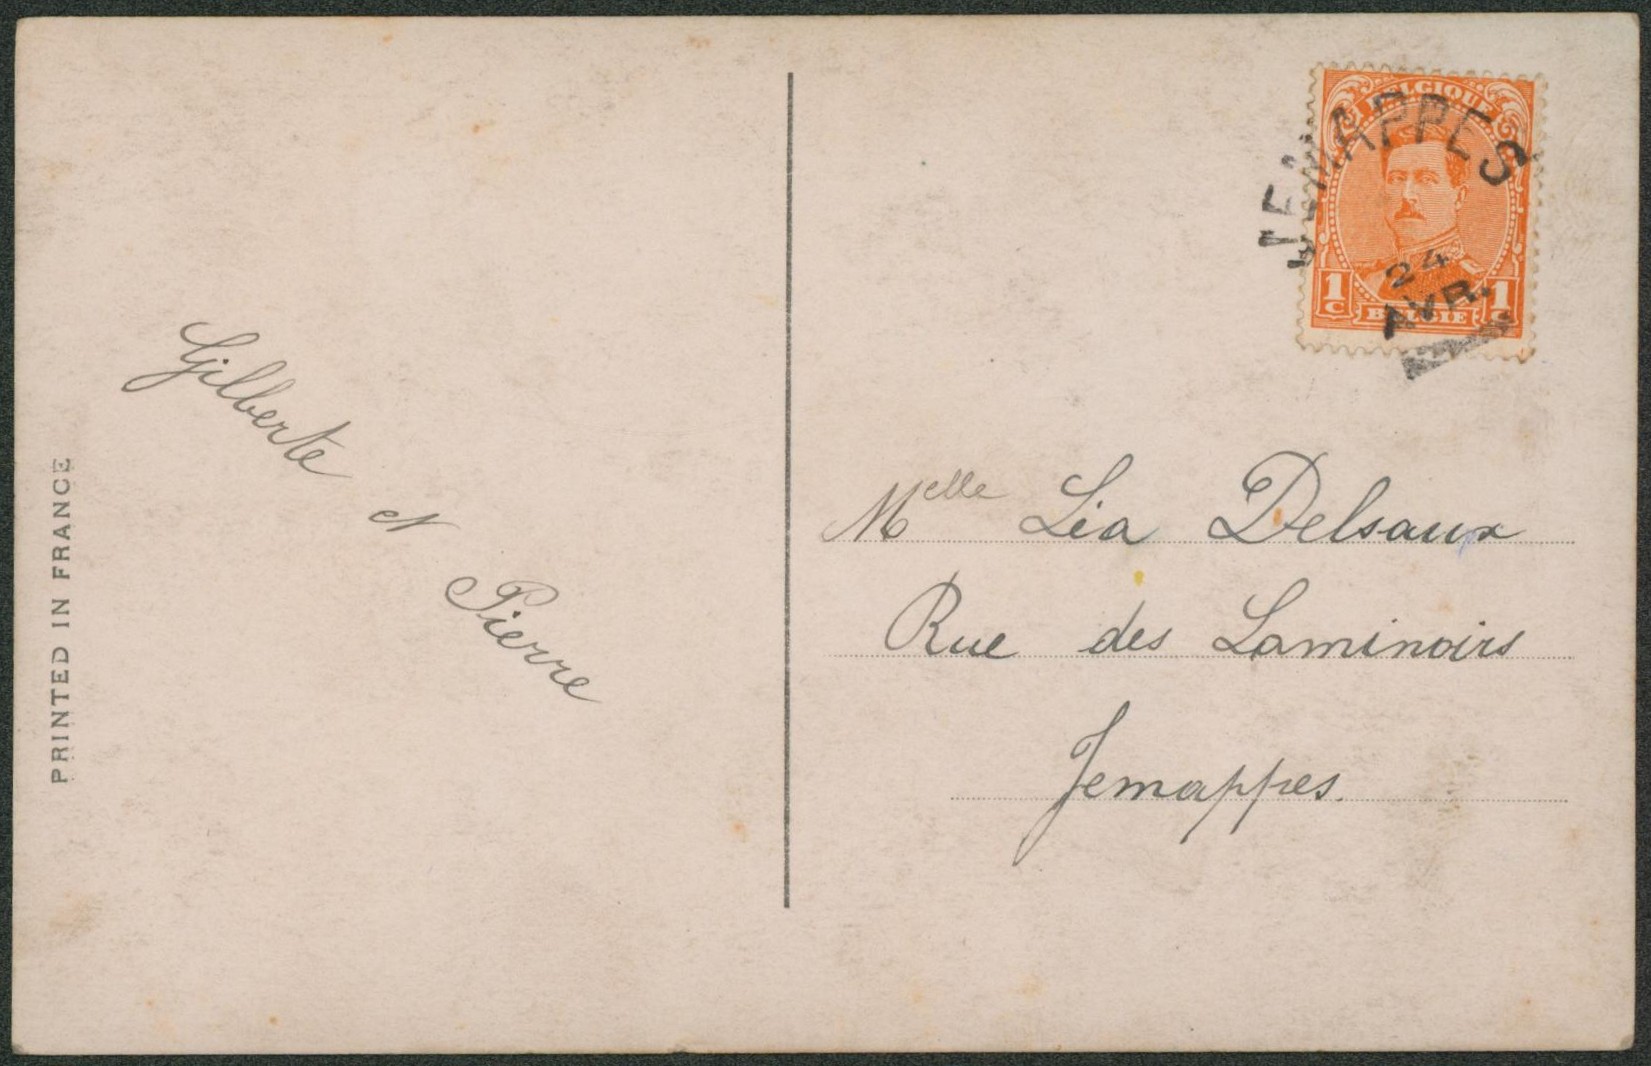 PRINTED IN FRANCE
Gilberte
et
Pierre
BELGIQUE
1C 1C
BELGIE
JEMAPPES
24
AVR.
Melle Léa Delsaux
Rue des Laminoirs
Jemappes.